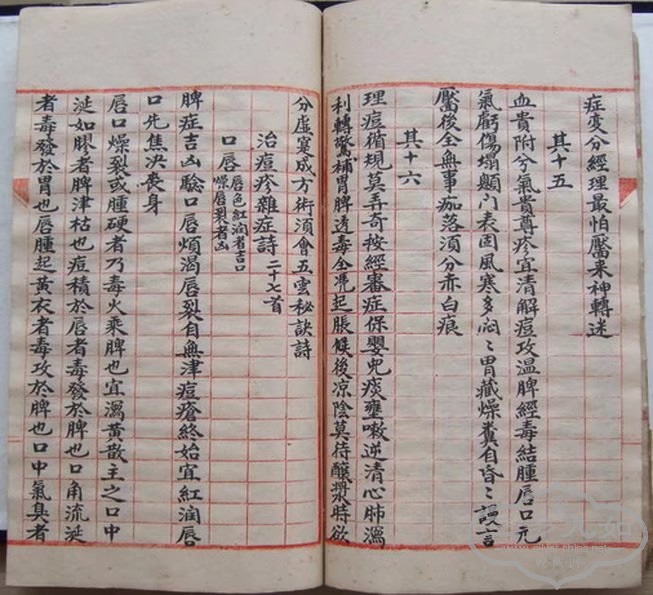 症变分經理最怕靨来神轉迷
其十五
血貴附兮氣貴尊疹宜清解痘攻温脾經毒結腫唇口元
氣虧傷塌顖門表固風寒多悶〻胃藏燥糞自昏〻譫言
靨後全無事痂落須分赤白痕
其十六
理痘循規莫弄奇按經審症保嬰兒痰壅嗽逆清心肺瀉
利轉驚補胃脾透毒全凴起脹候後凉陰莫待釀漿時欲
分虛寔成方術須會五雲秘訣詩
治痘疹雜症詩二十七首
口唇唇色紅润者吉口
燥唇裂者凶
脾症吉凶驗口唇煩渴唇裂自無津痘瘡終始宜紅润唇
口先焦决喪身
唇口燥裂或腫硬者乃毒火乘脾也宜瀉黄散主之口中
涎如膠者脾津枯也痘積於唇者毒發於脾也口角流涎
者毒發於胃也唇腫起黄衣者毒攻於脾也口中氣臭者